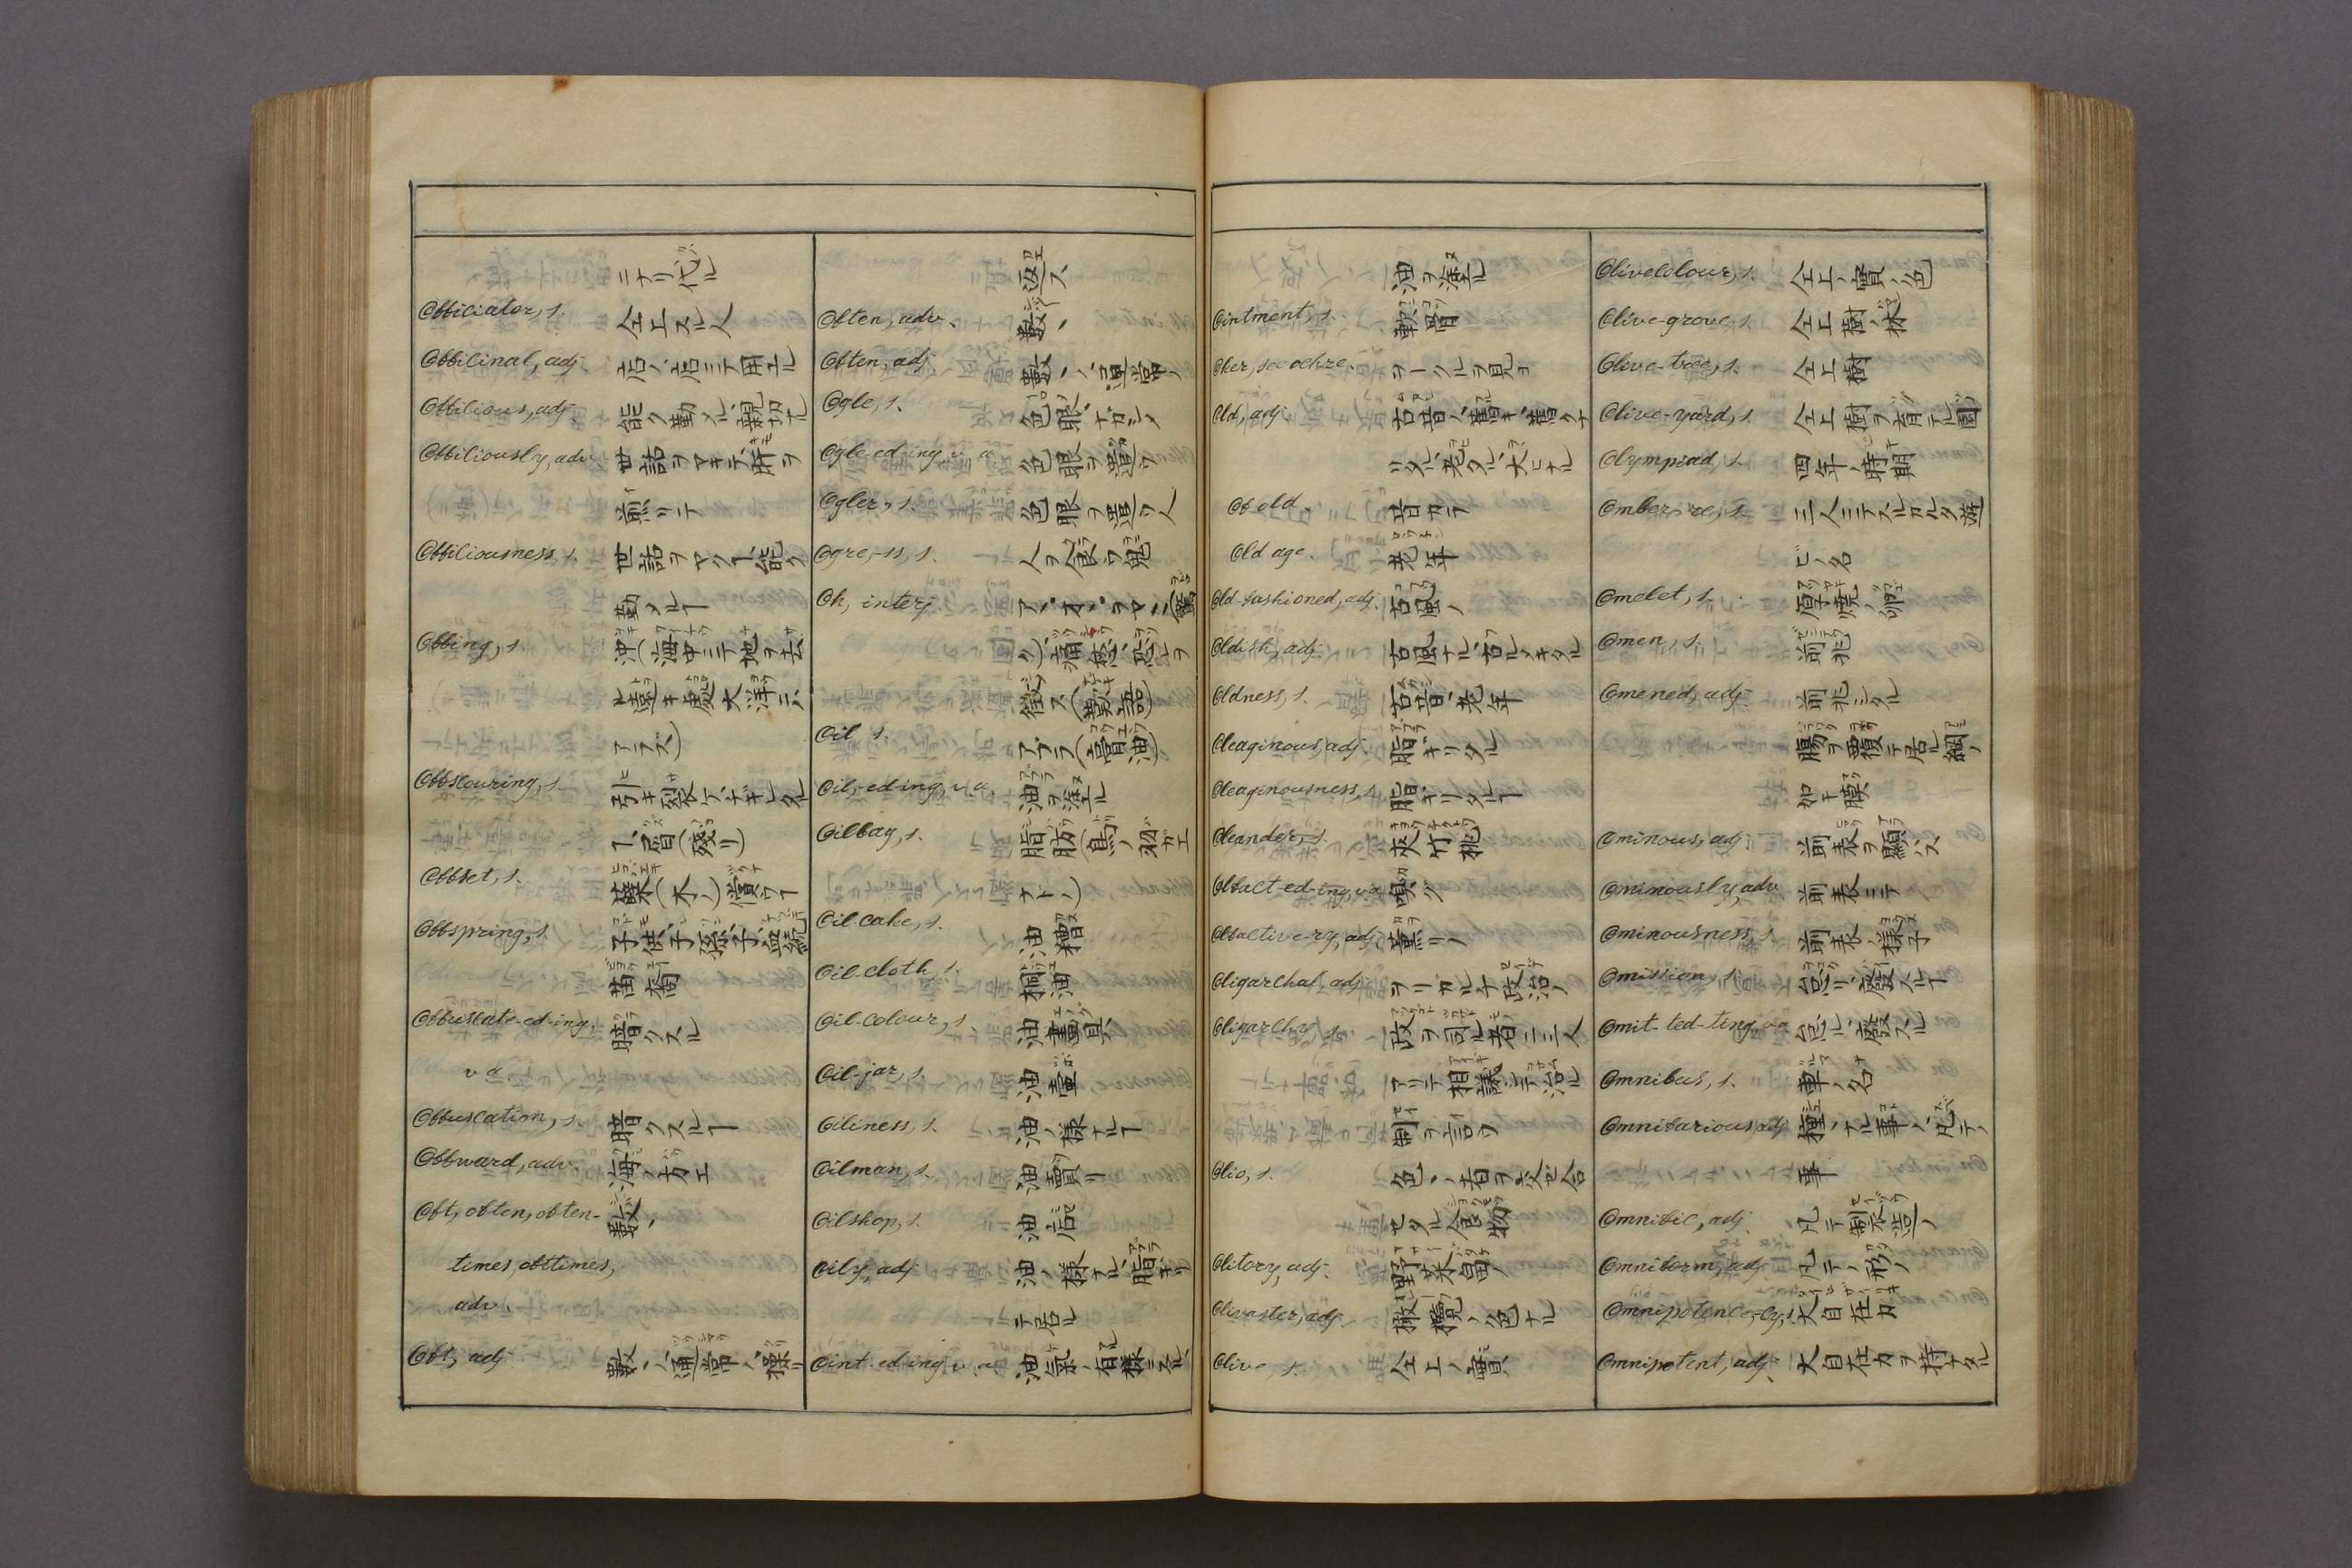 ニナリ代ル
Officiator, s. 仝上スル人
Officinal, adj. 店ノ、店ニテ用エル
Officious, adj. 能ク勤メル、親切ナル
Officiously, adv. 世話ヲマキテ、肝ヲ
煎リテ
Officiousness, s. 世話ヲマクヿ、能ク
勤メルヿ
Offing, s. 沖(海中ニテ地ヲ去
ル遠キ處大洋ニハ
アラズ)
Offscouring, s. 引キ裂ケ、チギレタル
ヿ、屑(殘リ)
Offset, s. 蘖(木ノ)償フヿ
Offspring, s. 子供、子孫、子、血統
苗裔
Offuscate-ed-ing, 暗クスル
v a.
Offuscation, s. 暗クスルヿ
Offward, adv. 海ノ方エ
Oft, often, often- 數〻
times, ofttimes,
adv.
Oft, adj. 數〻ノ、通常ノ、操リ
返ス
Often, adv. 數〻
Often, adj. 數〻ノ、通常ノ
Ogle, s. 色眼、ナガシメ
Ogle-ed-ing, v a. 色眼ヲ遣フ
Ogler, s. 色眼ヲ遣フ人
Ogre,-ss, s. 人ヲ食フ鬼
Oh, interj.
發ス(歎語)
Oil s. アブラ(膏油)
Oil,-ed-ing, v a. 油ヲ塗ル
Oilbag, s. 脂肪(鳥ノ羽ガエ
ナドノ)
Oil-cake, s. 油糟
Oil-cloth, s. 桐油
Oil-colour, s. 油畫具
Oil-jar, s. 油壷
Oiliness, s. 油ノ様ナルヿ
Oilman, s. 油賣リ
Oilshop, s. 油店
Oily, adj. 油ノ様ナル、脂ギリ
テ居ル
Oint-ed-ing, v a.
油ヲ塗ル
Ointment, s. 軟膏
Oker, see ochre. ヲークルヲ見ヨ
Old, adj. 古昔ノ、舊キ、舊クナ
リタル、老タル、大ヒナル
Of old. 昔カラ
Old age. 老年
Old fashioned, adj. 古風ノ
Oldish, adj. 古風ナル、古ルメキタル
Oldness, s. 古昔、老年
Oleaginous, adj. 脂ギリタル
Oleaginousness, s. 脂ギリタルヿ
Oleander, s. 夾竹桃
Olfact-ed-ing, v a. 嗅グ
Olfactive-ry, adj. 薫リノ
Oligarchal, adj. ヲリガルチ政治ノ
Oligarchy, s. 政ヲ司ル者二三人
アリテ相議シテ治ル
制ヲ言フ
Olio, s. 色〻ノ者ヲ交ゼ合
セタル食物
Olitory, adj. 野菜畠ノ
Olivaster, adj. 橄欖ノ色ナル
Olive, s. 仝上ノ實
Olivecolour, s. 仝上ノ實ノ色
Olive-grove, s. 仝上樹ノ林
Olive-tree, s. 仝上樹
Olive-yard, s. 仝上樹ヲ育テル園
Olympiad, s. 四年ノ時期
Omber,-re, s. 三人ニテスルカルタ遊
ビノ名
Omelet, s. 厚焼ノ卵
Omen, s. 前兆
Omened, adj. 前兆シタル
腸ヲ覆テ居ル網ノ
如キ膜
Ominous, adj. 前表ヲ顕ハス
Ominously, adv. 前表ニテ
Ominousness, s. 前表ノ様子
Omission, s. 怠リ、廢スルヿ
Omit-ted-ting, v a. 怠ル、廢スル
Omnibus, s. 車ノ名
Omnifarious, adj. 種〻ナル事ノ、凡テノ
事
Omnific, adj. 凡テ制造ノ
Omniform, adj. 凡テノ形ノ
Omnipotence,-cy, s. 大自在力
Omnipotent, adj. 大自在力ヲ持チタル